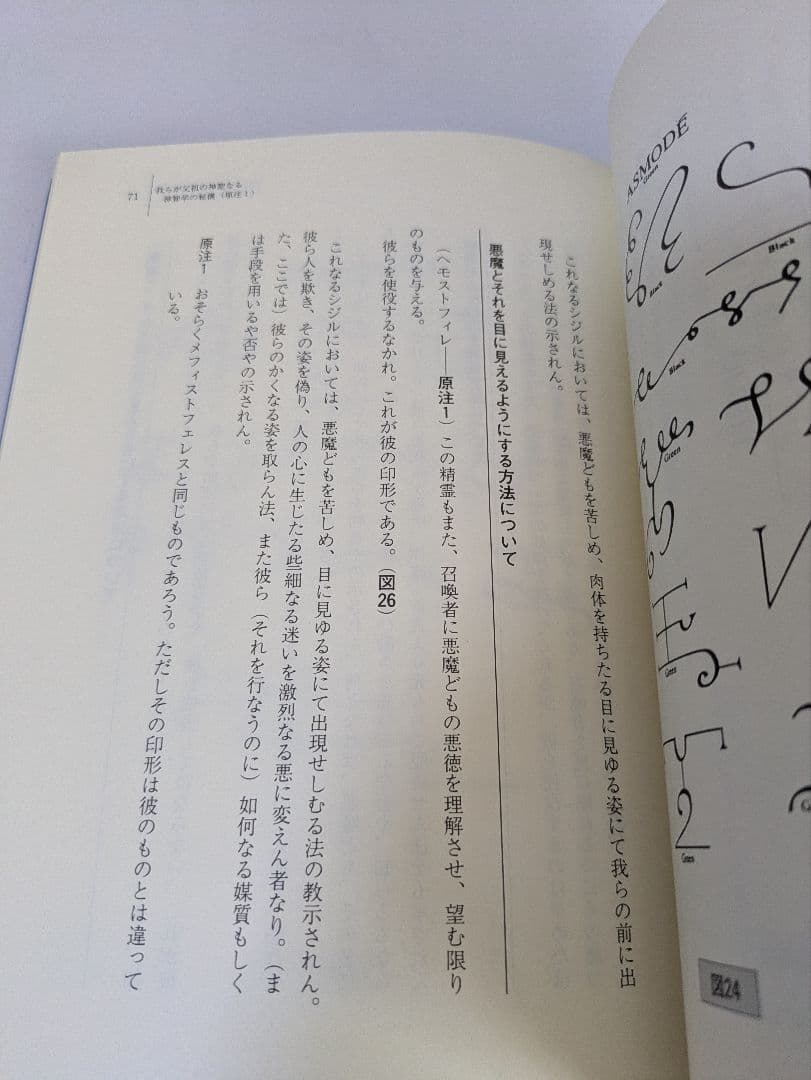 71
我らが父祖の神聖なる
神智学の秘儀（原注1）
これなるシジルにおいては、悪魔どもを苦しめ、肉体を持ちたる目に見ゆる姿にて我らの前に出
現せしめる法の示されん。
悪魔とそれを目に見えるようにする方法について
（ヘモストフィレ——原注1）この精霊もまた、召喚者に悪魔どもの悪徳を理解させ、望む限り
のものを与える。
彼らを使役するなかれ。これが彼の印形である。（図26）
これなるシジルにおいては、悪魔どもを苦しめ、目に見ゆる姿にて出現せしむる法の教示されん。
彼ら人を欺き、その姿を偽り、人の心に生じたる些細なる迷いを激烈なる悪に変えん者なり。（ま
た、ここでは）彼らのかくなる姿を取らん法、また彼ら（それを行なうのに）如何なる媒質もしく
は手段を用いるや否やの示されん。
原注1　おそらくメフィストフェレスと同じものであろう。ただしその印形は彼のものとは違って
いる。
ASMODÉ
Green
Black
Black
Black
Green
Green
Green
図24